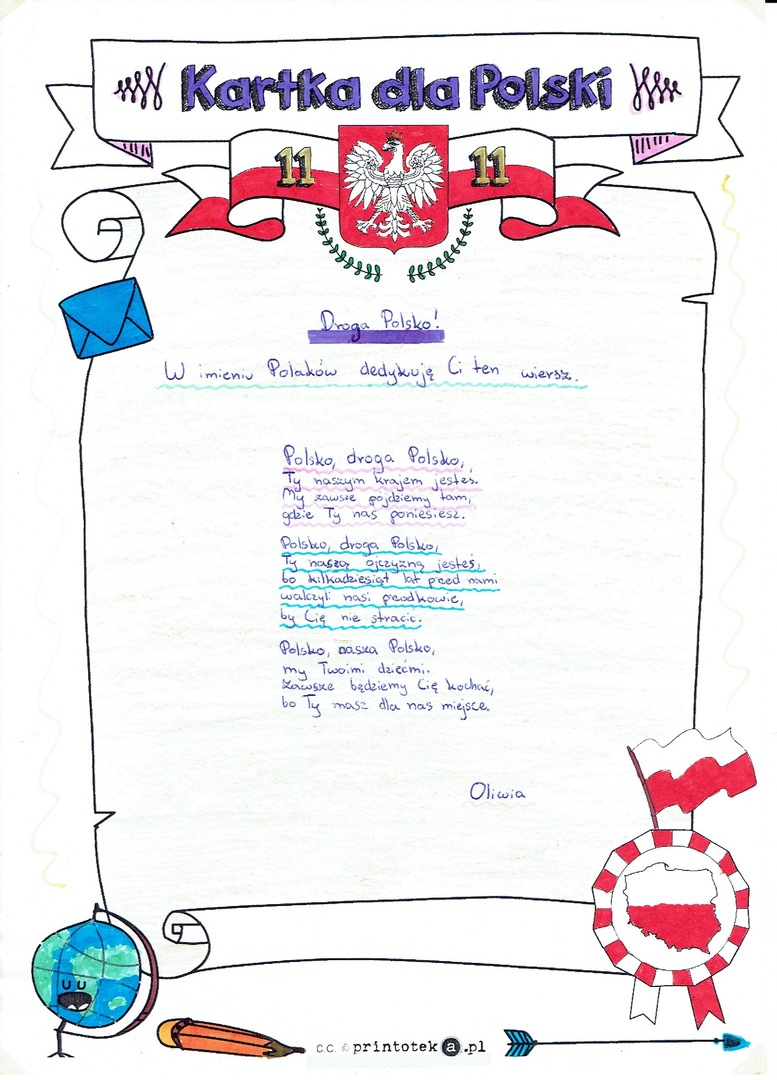 Kartka dla Polski
11 11
Droga Polsko!
W imieniu Polaków dedykuję Ci ten wiersz.
Polsko, droga Polsko,
Ty naszym krajem jesteś.
My zawsze pójdziemy tam,
gdzie Ty nas poniesiesz.
Polsko, droga Polsko,
Ty naszą ojczyzną jesteś,
bo kilkadziesiąt lat przed nami
walczyli nasi przodkowie,
by Cię nie stracić.
Polsko, nasza Polsko,
my Twoimi dziećmi.
Zawsze będziemy Cię kochać,
bo Ty masz dla nas miejsce.
Oliwia
c.c. © printoteka.pl